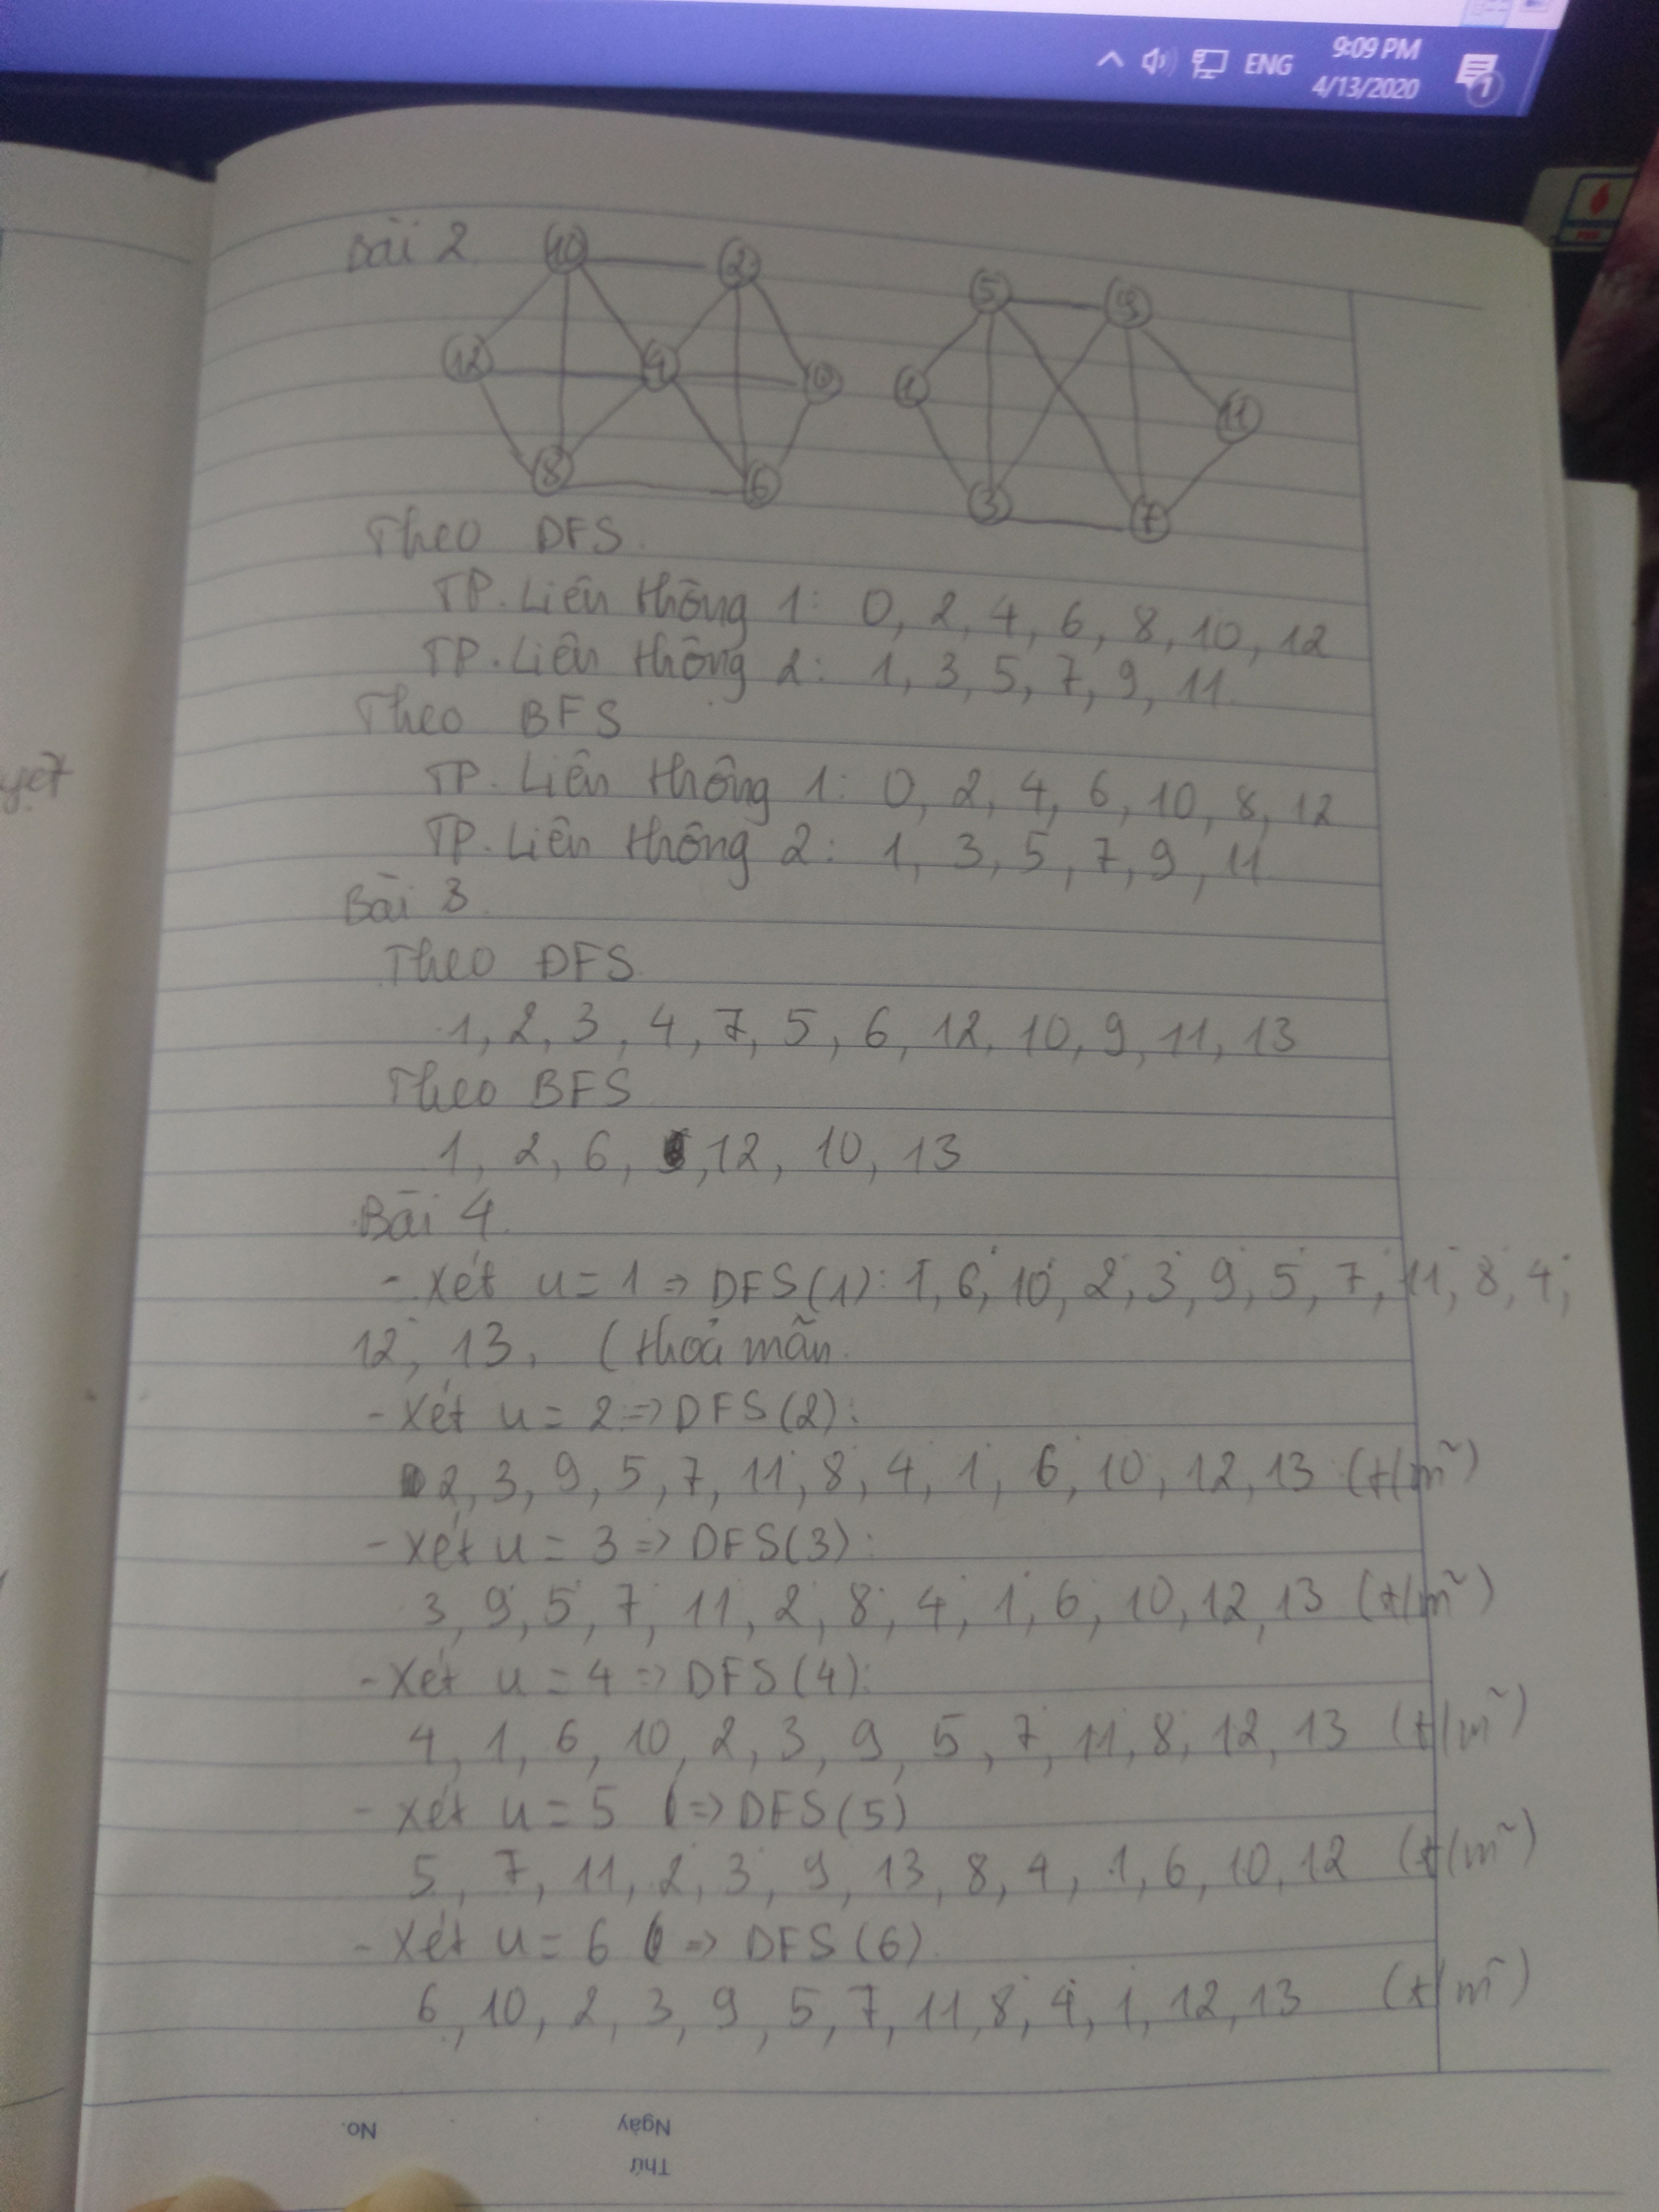 9:09 PM
ENG
4/13/2020
1
Bài 2
10 2 5 9
12 4 0 1 11
8 6 3 7
Theo DFS.
TP. Liên thông 1: 0, 2, 4, 6, 8, 10, 12
TP. Liên thông 2: 1, 3, 5, 7, 9, 11.
Theo BFS
TP. Liên thông 1: 0, 2, 4, 6, 10, 8, 12
TP. Liên thông 2: 1, 3, 5, 7, 9, 11
Bài 3.
Theo ĐFS
1, 2, 3, 4, 7, 5, 6, 12, 10, 9, 11, 13
Theo BFS
1, 2, 6, 12, 10, 13
Bài 4.
- Xét u = 1 => DFS(1): 1, 6, 10, 2, 3, 9, 5, 7, 11, 8, 4,
12, 13, (thoả mãn.
- Xét u = 2 => DFS(2):
2, 3, 9, 5, 7, 11, 8, 4, 1, 6, 10, 12, 13 (t/m~)
- Xét u = 3 => DFS(3):
3, 9, 5, 7, 11, 2, 8, 4, 1, 6, 10, 12, 13 (t/m~)
- Xét u = 4 => DFS(4):
4, 1, 6, 10, 2, 3, 9, 5, 7, 11, 8, 12, 13 (t/m~)
- Xét u = 5 => DFS(5)
5, 7, 11, 2, 3, 9, 13, 8, 4, 1, 6, 10, 12 (t/m~)
- Xét u = 6 => DFS(6)
6, 10, 2, 3, 9, 5, 7, 11, 8, 4, 1, 12, 13 (t/m~)
No.
Ngày
Thứ